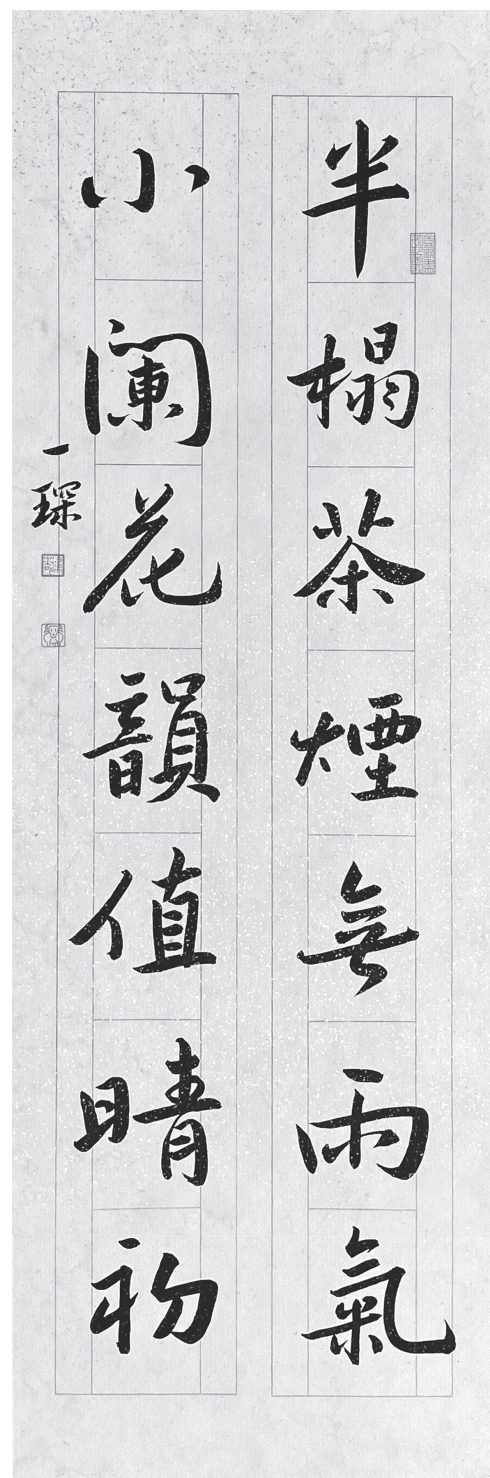 半榻茶煙無雨氣
小闌花韻值晴初
一琛